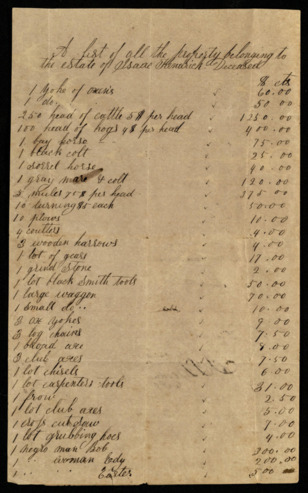 A list of all the property belonging to
the estate of Isaac Hendrick Deceased
$ cts
1 Yoke of oxens 60.00
1 do. 50 00
250 head of cattle 5$ per head 1250.00
100 head of hogs 4$ per head 400.00
1 bay horse 75.00
1 black colt 25.00
1 sorrel horse 40.00
1 gray mare & colt 120.00
5 mules 75$ per head 375.00
10 $5 each 50.00
10 plows 10.00
4 coulters 4.00
2 wooden harrows 4.00
1 lot of gears 17.00
1 grind stone 2.00
1 lot black smith tools 50.00
1 large waggon 70.00
1 small do 10.00
2 ox yokes 9.00
3 log chains 7.50
1 broad axe
3 club axes 7.50
1 lot chisels 6.00
1 lot carpenters tools 31.00
1 frow 2.50
1 lot club axes 5.00
1 cut saw 7.00
1 lot grubbing hoes 4.00
1 negro man Bob 200.00
1 " woman 200.00
1 " " Easter 500